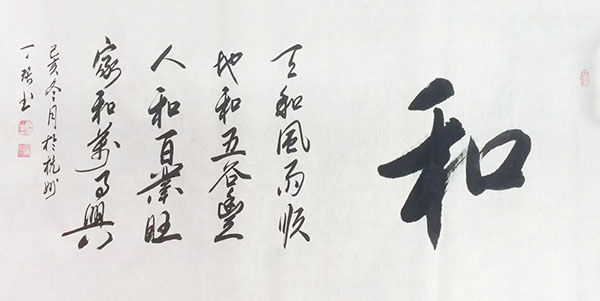 和
天和風雨順
地和五谷豐
人和百業旺
家和萬事興
己亥冬月於杭州